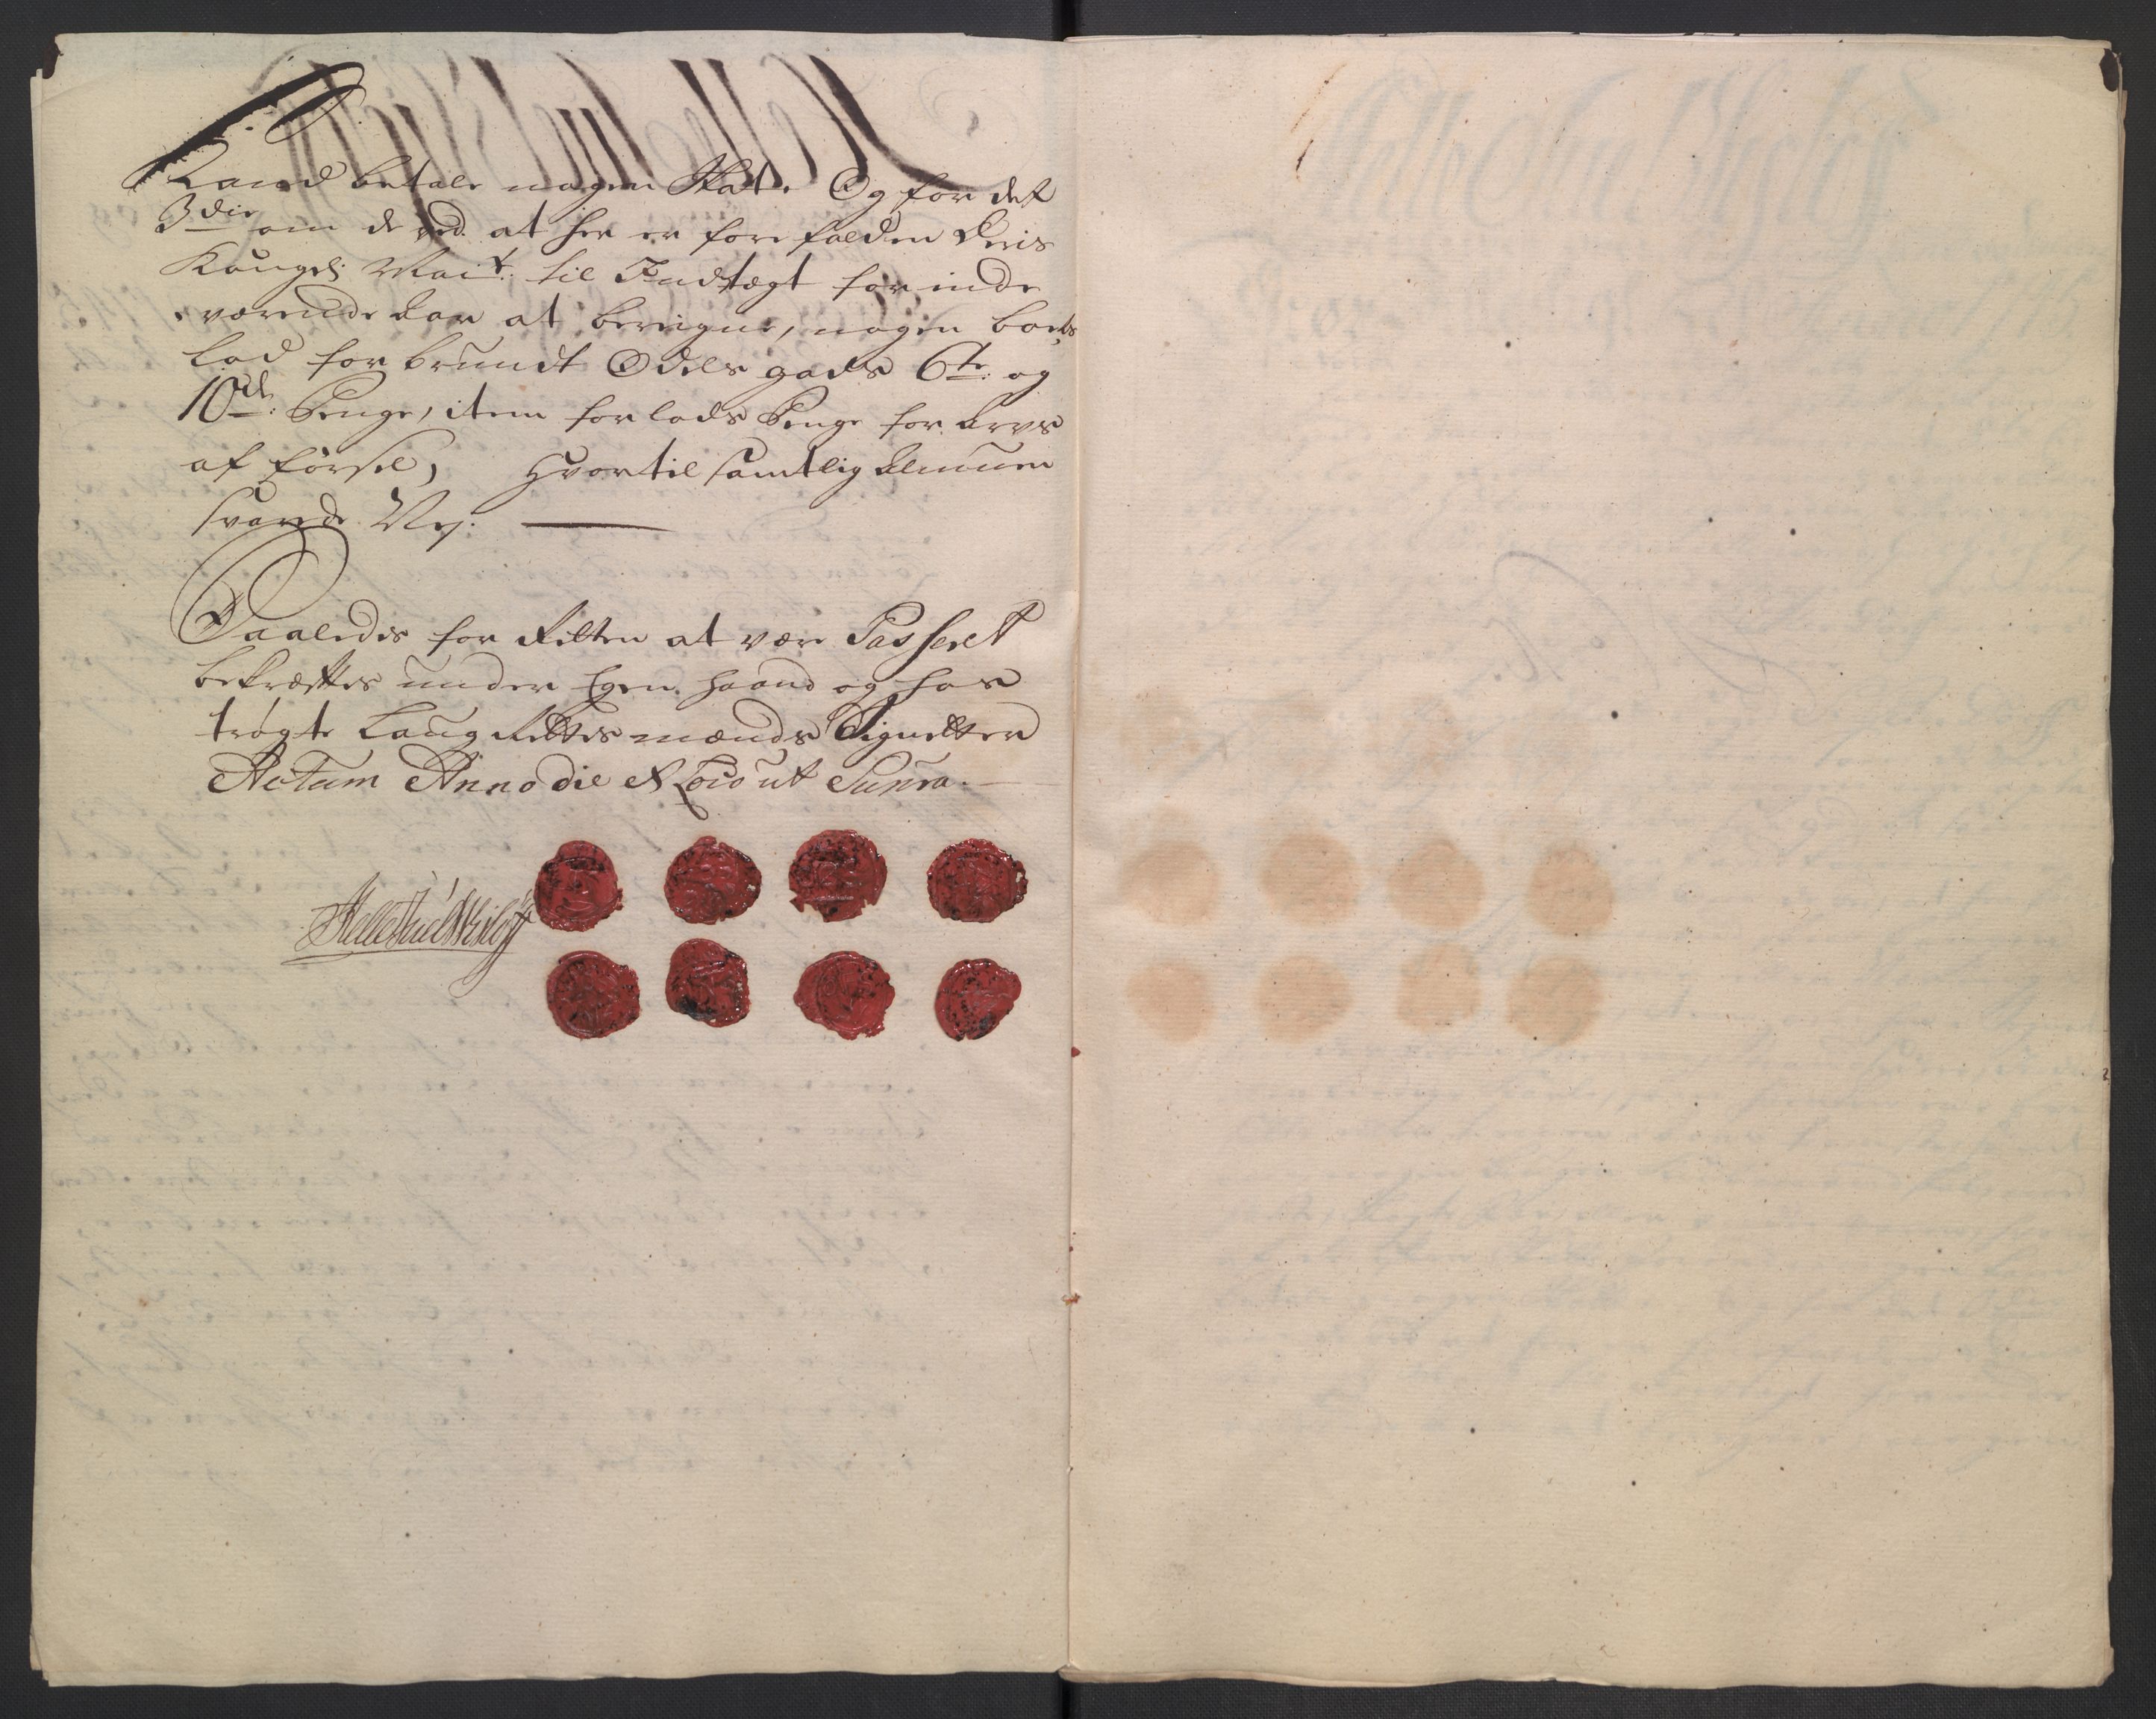 Kand betale nogen Skat. Og for det
3die om de ved at her er forefalden Deris
Kongel: Mait: til Indtægt for inde
værende Aar at beregne, nogen boes
lod for brundt Odels gods 6te: og
10de: Penge, item forlods Penge for Arvs
af førsel, Hvortil samtlig Almuen
svarede Nej:
Saaledis for Retten at være Passeret
bekræftes under Egen haand og hos
trøgte Laug Rettes mænds Signetter
Actum Anno die et Loco ut Supra.